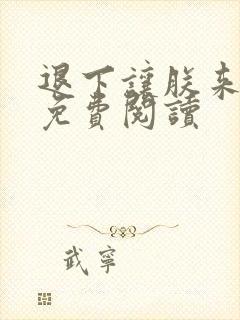 退下讓朕來
免費閱讀
武寧